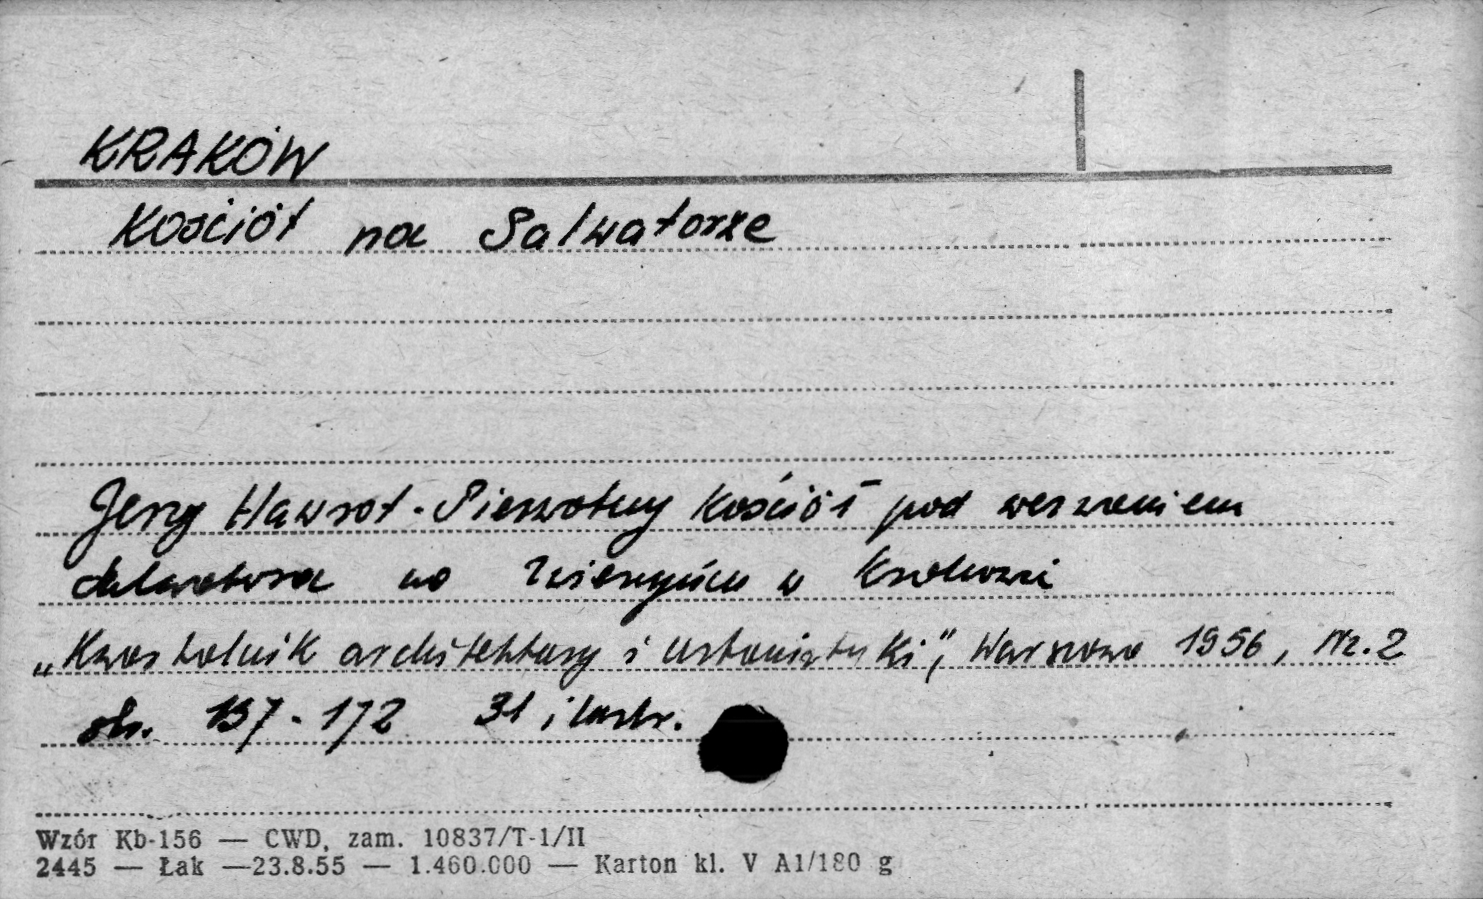 KRAKÓW
Kościół na Salwatorze
Jerzy Hawrot - Pierwotny kościół pod wezwaniem
Salwatora na Zwierzyńcu w Krakowie
„Kwartalnik architektury i urbanistyki", Warszawa 1956, Nr. 2
str. 137-172 31 ilustr.
Wzór Kb-156 — CWD, zam. 10837/T-1/II
2445 — Łak —23.8.55 — 1.460.000 — Karton kl. V A1/180 g